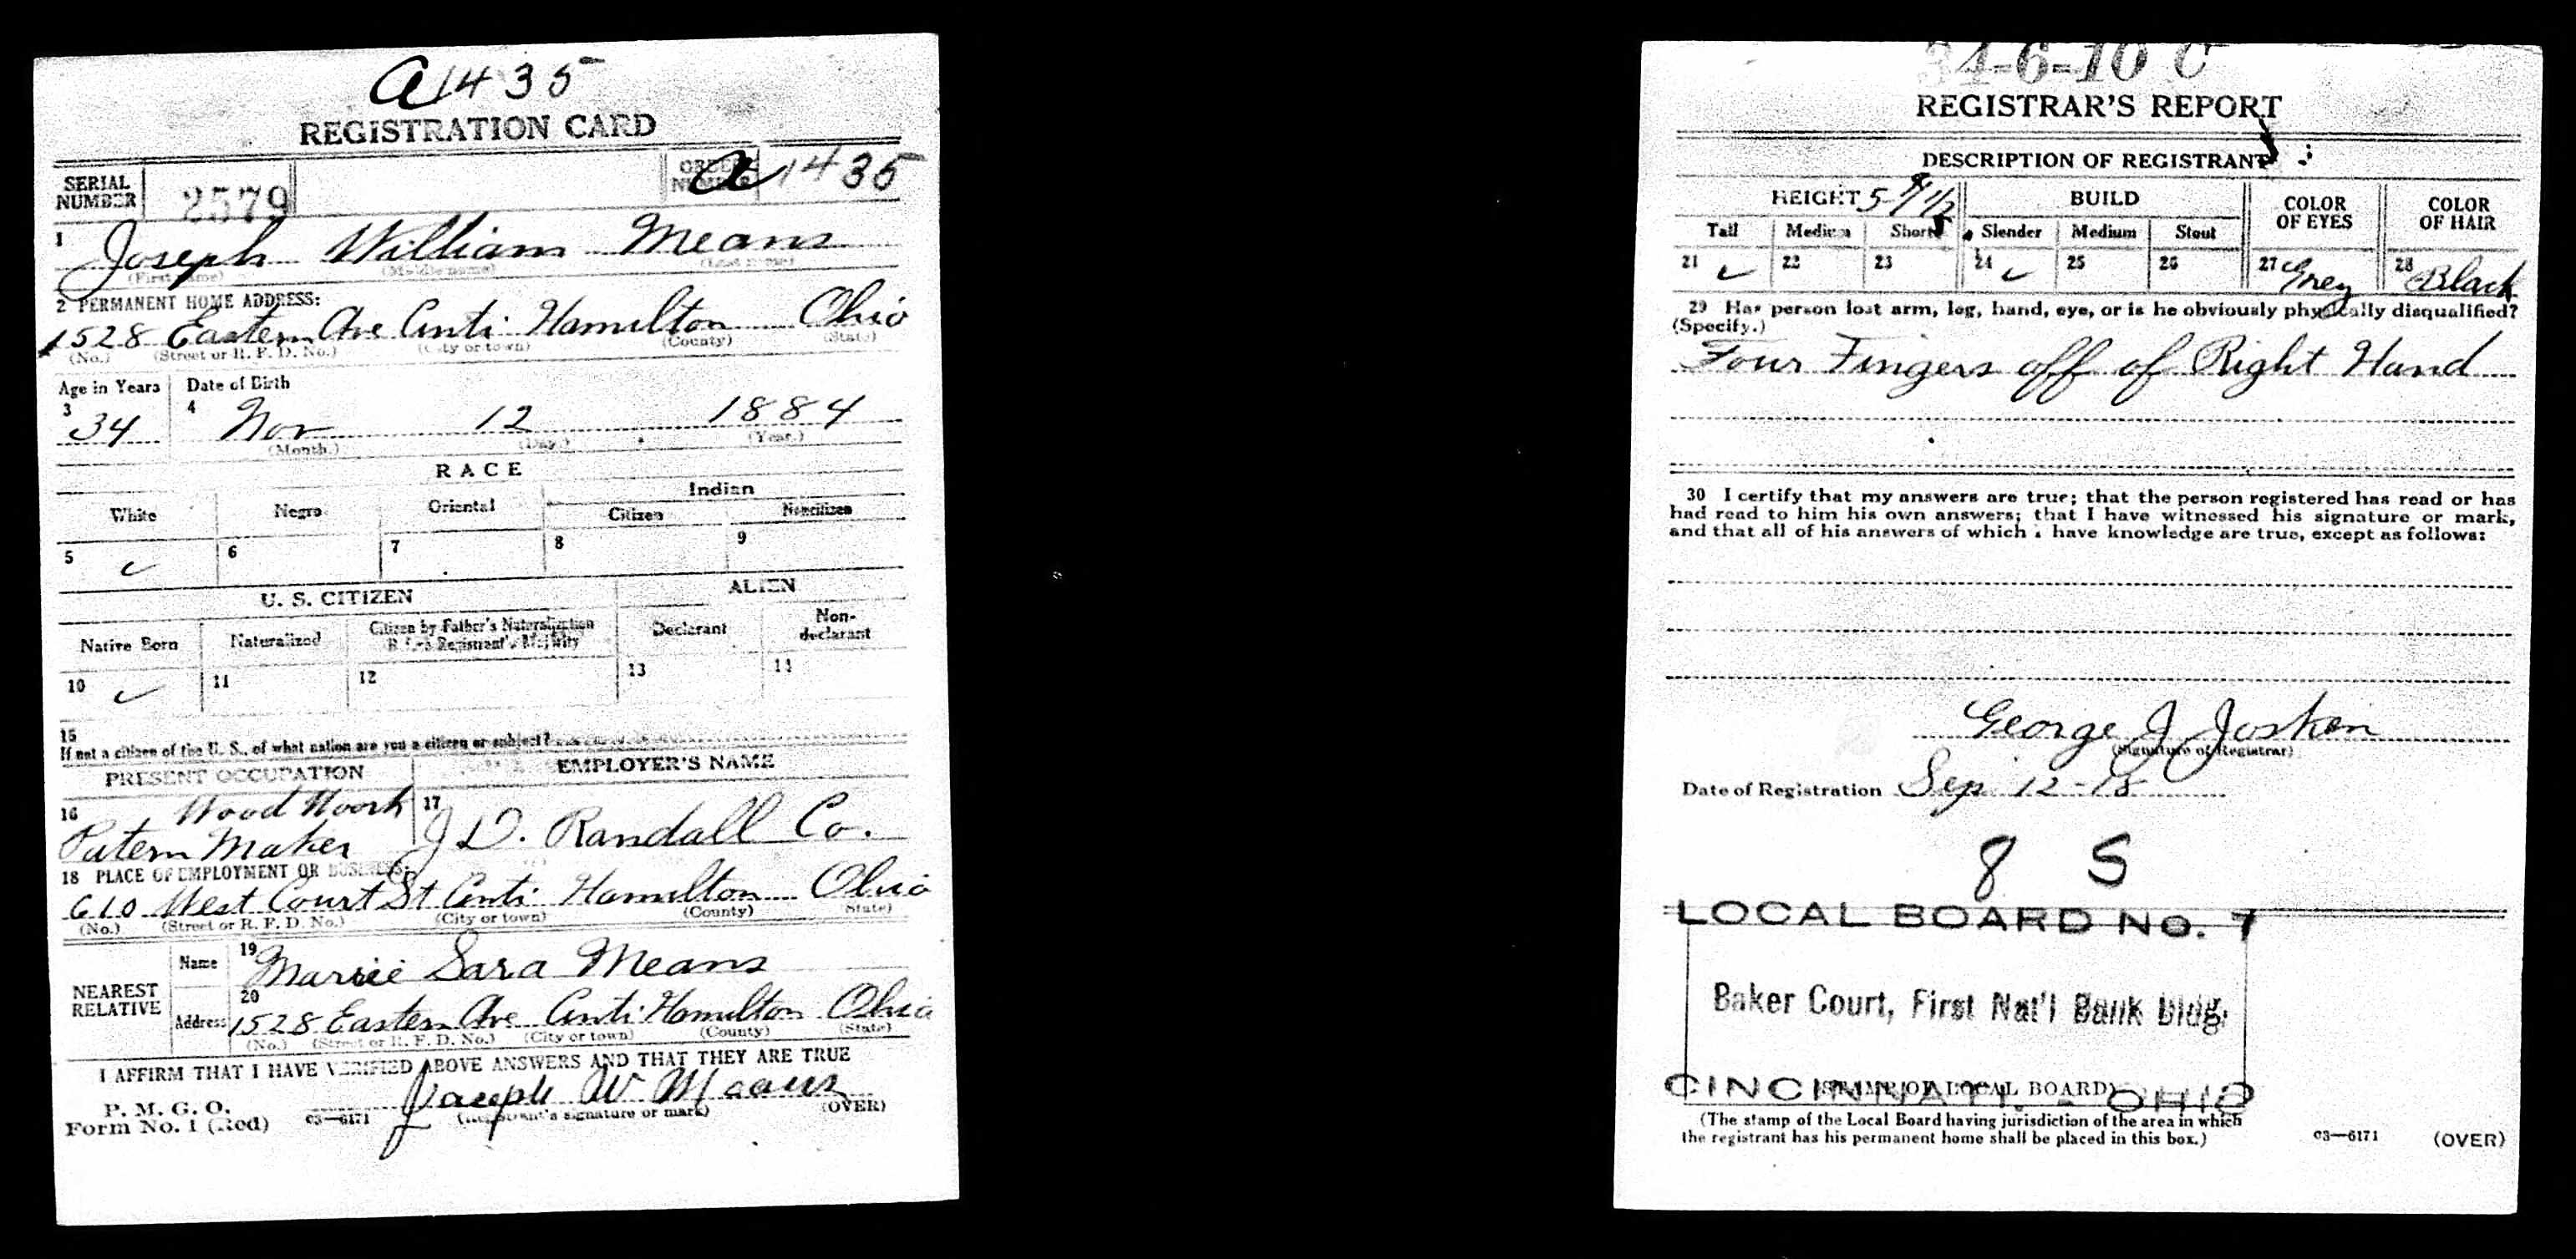 A1435
REGISTRATION CARD
SERIAL NUMBER 2579 ORDER NUMBER A1435
1 Joseph William Means
(First name) (Middle name) (Last name)
2 PERMANENT HOME ADDRESS:
1528 Eastern Ave Cinti Hamilton Ohio
(No.) (Street or R. F. D. No.) (City or town) (County) (State)
Age in Years Date of Birth
3 34 4 Nov 12 1884
(Month.) (Day.) (Year.)
RACE
White Negro Oriental Indian
Citizen Noncitizen
5 ✓ 6 7 8 9
U. S. CITIZEN ALIEN
Native Born Naturalized Citizen by Father's Naturalization Before Registrant's Majority Declarant Non-declarant
10 ✓ 11 12 13 14
15
If not a citizen of the U. S., of what nation are you a citizen or subject?
PRESENT OCCUPATION EMPLOYER'S NAME
16 Wood Work 17
Patern Maker J D. Randall Co.
18 PLACE OF EMPLOYMENT OR BUSINESS:
610 West Court St Cinti Hamilton Ohio
(No.) (Street or R. F. D. No.) (City or town) (County) (State)
NEAREST RELATIVE
Name 19 Marrie Sara Means
Address 20 1528 Eastern Ave Cinti Hamilton Ohio
(No.) (Street or R. F. D. No.) (City or town) (County) (State)
I AFFIRM THAT I HAVE VERIFIED ABOVE ANSWERS AND THAT THEY ARE TRUE
P. M. G. O.
Form No. 1 (Red) 03—6171 Joseph W Means
(Registrant's signature or mark) (OVER)
34-6-10 C
REGISTRAR'S REPORT
DESCRIPTION OF REGISTRANT
HEIGHT BUILD COLOR OF EYES COLOR OF HAIR
Tall Medium Short Slender Medium Stout
21 ✓ 22 23 24 ✓ 25 26 27 Grey 28 Black
29 Has person lost arm, leg, hand, eye, or is he obviously physically disqualified?
(Specify.)
Four Fingers off of Right Hand
30 I certify that my answers are true; that the person registered has read or has
had read to him his own answers; that I have witnessed his signature or mark,
and that all of his answers of which I have knowledge are true, except as follows:
George J Josken
(Signature of Registrar)
Date of Registration Sep 12-18
8 S
LOCAL BOARD No. 7
Baker Court, First Nat'l Bank Bldg.
CINCINNATI, - OHIO
(STAMP OF LOCAL BOARD)
(The stamp of the Local Board having jurisdiction of the area in which
the registrant has his permanent home shall be placed in this box.)
03—6171 (OVER)